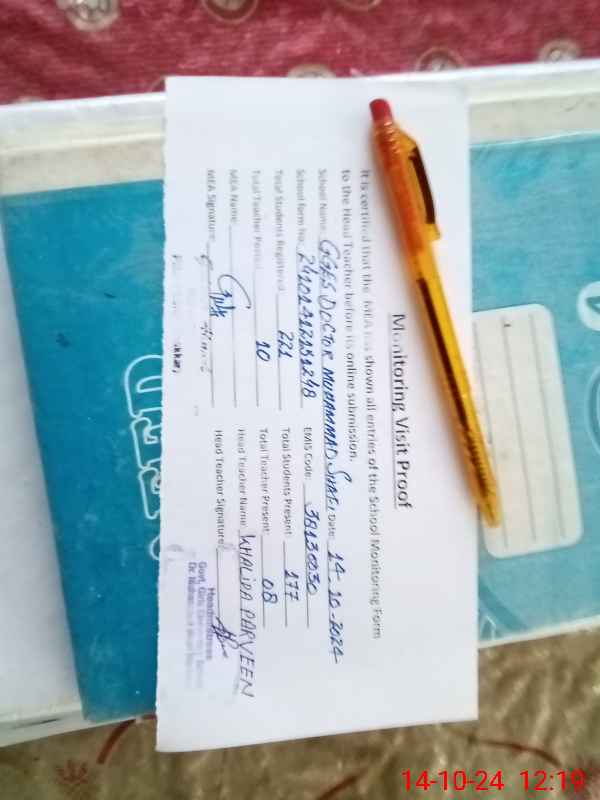 Monitoring Visit Proof
It is certified that the MEA has shown all entries of the School Monitoring Form
to the Head Teacher before its online submission.
School Name: GGES DOCTOR MUHAMMAD SHAFI Date: 14-10-2024
School Form No. EMIS Code: 38130030
Total Students Registered: 221 Total Students Present: 177
Total Teacher Posted: 10 Total Teacher Present: 08
MEA Name: Head Teacher Name: KHALIDA PARVEEN
MEA Signature: Head Teacher Signature:
Headmistress
Govt. Girls
14-10-24 12:19